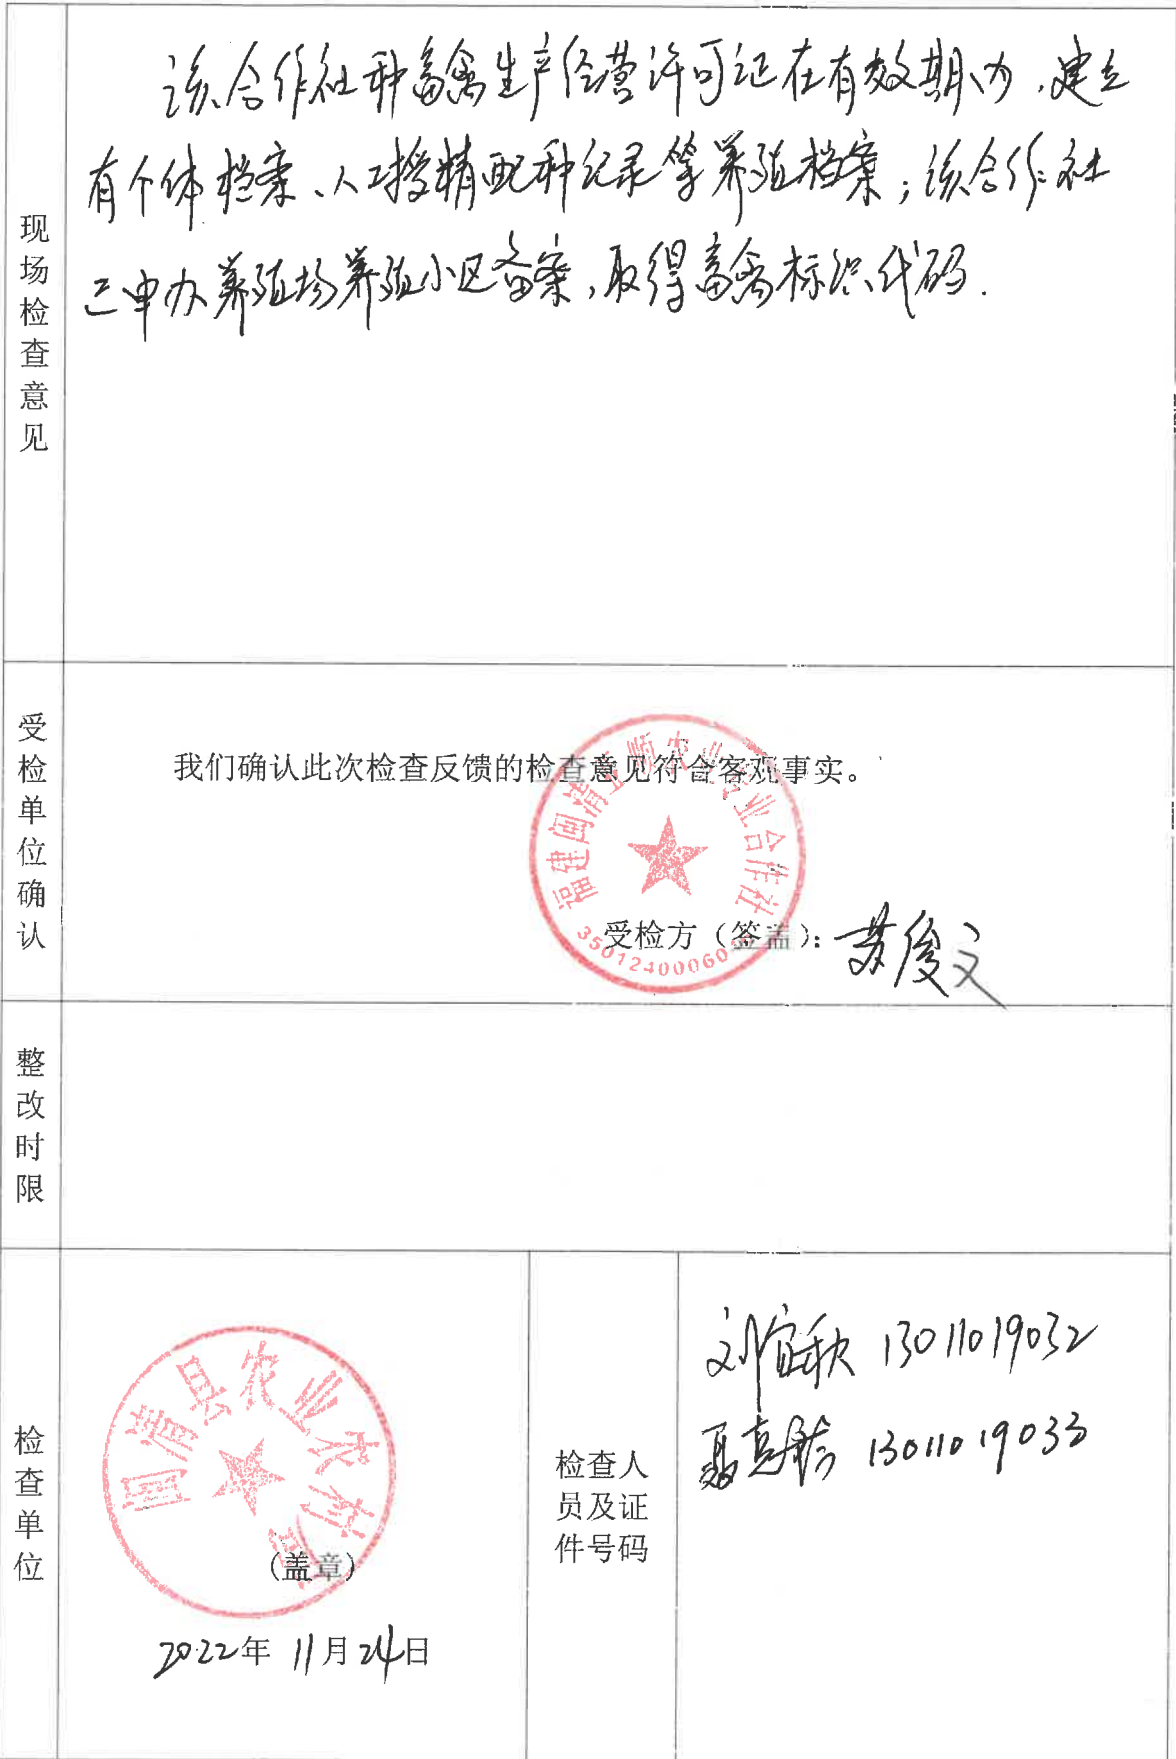 现场检查意见
该合作社种畜禽生产经营许可证在有效期内，建立
有个体档案、人工授精配种记录等养殖档案；该合作社
已申办养殖场养殖小区备案，取得畜禽标识代码.
受检单位确认
我们确认此次检查反馈的检查意见符合客观事实。
福建闽清亚顺农业专业合作社
受检方（签盖）：苏俊文
35012400060
整改时限
检查单位
闽清县农业农村局
（盖章）
2022年 11月24日
检查人
员及证
件号码
刘宜秋 13011019032
13011019033